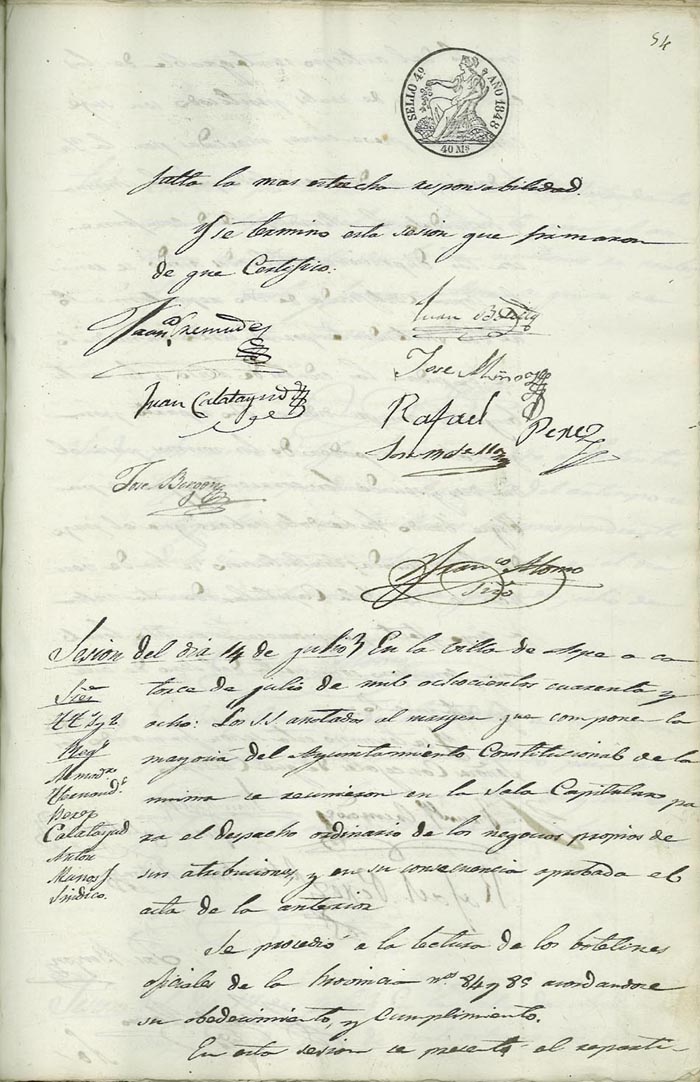 54
SELLO 4º AÑO 1848
40 Ms
falta la mas estrecha responsabilidad.
Y se termino esta sesion que firmaron
de que Certifico:
Juan B.
Jose
Juan Calatayud
Rafael Perez
Jose
Franco Alonso
Srio
Sesion del dia 14 de julio En la villa de Aspe a ca
torce de julio de mil ochocientos cuarenta y
ocho: Los SS. anotados al margen que compone la
mayoria del Ayuntamiento Constitucional de la
misma se reunieron en la Sala Capitular pa
ra el despacho ordinario de los negocios propios de
sus atribuciones, y en su consecuencia aprobada el
acta de la anterior
Sres
Regs
Almodre
Hernands
Perez
Calatayud
Anton
Síndico.
Se procedió a la lectura de los boletines
oficiales de la Provincia nos 84 y 85 acordandose
su obedecimiento, y cumplimiento.
En esta sesion se presentó el reparti-